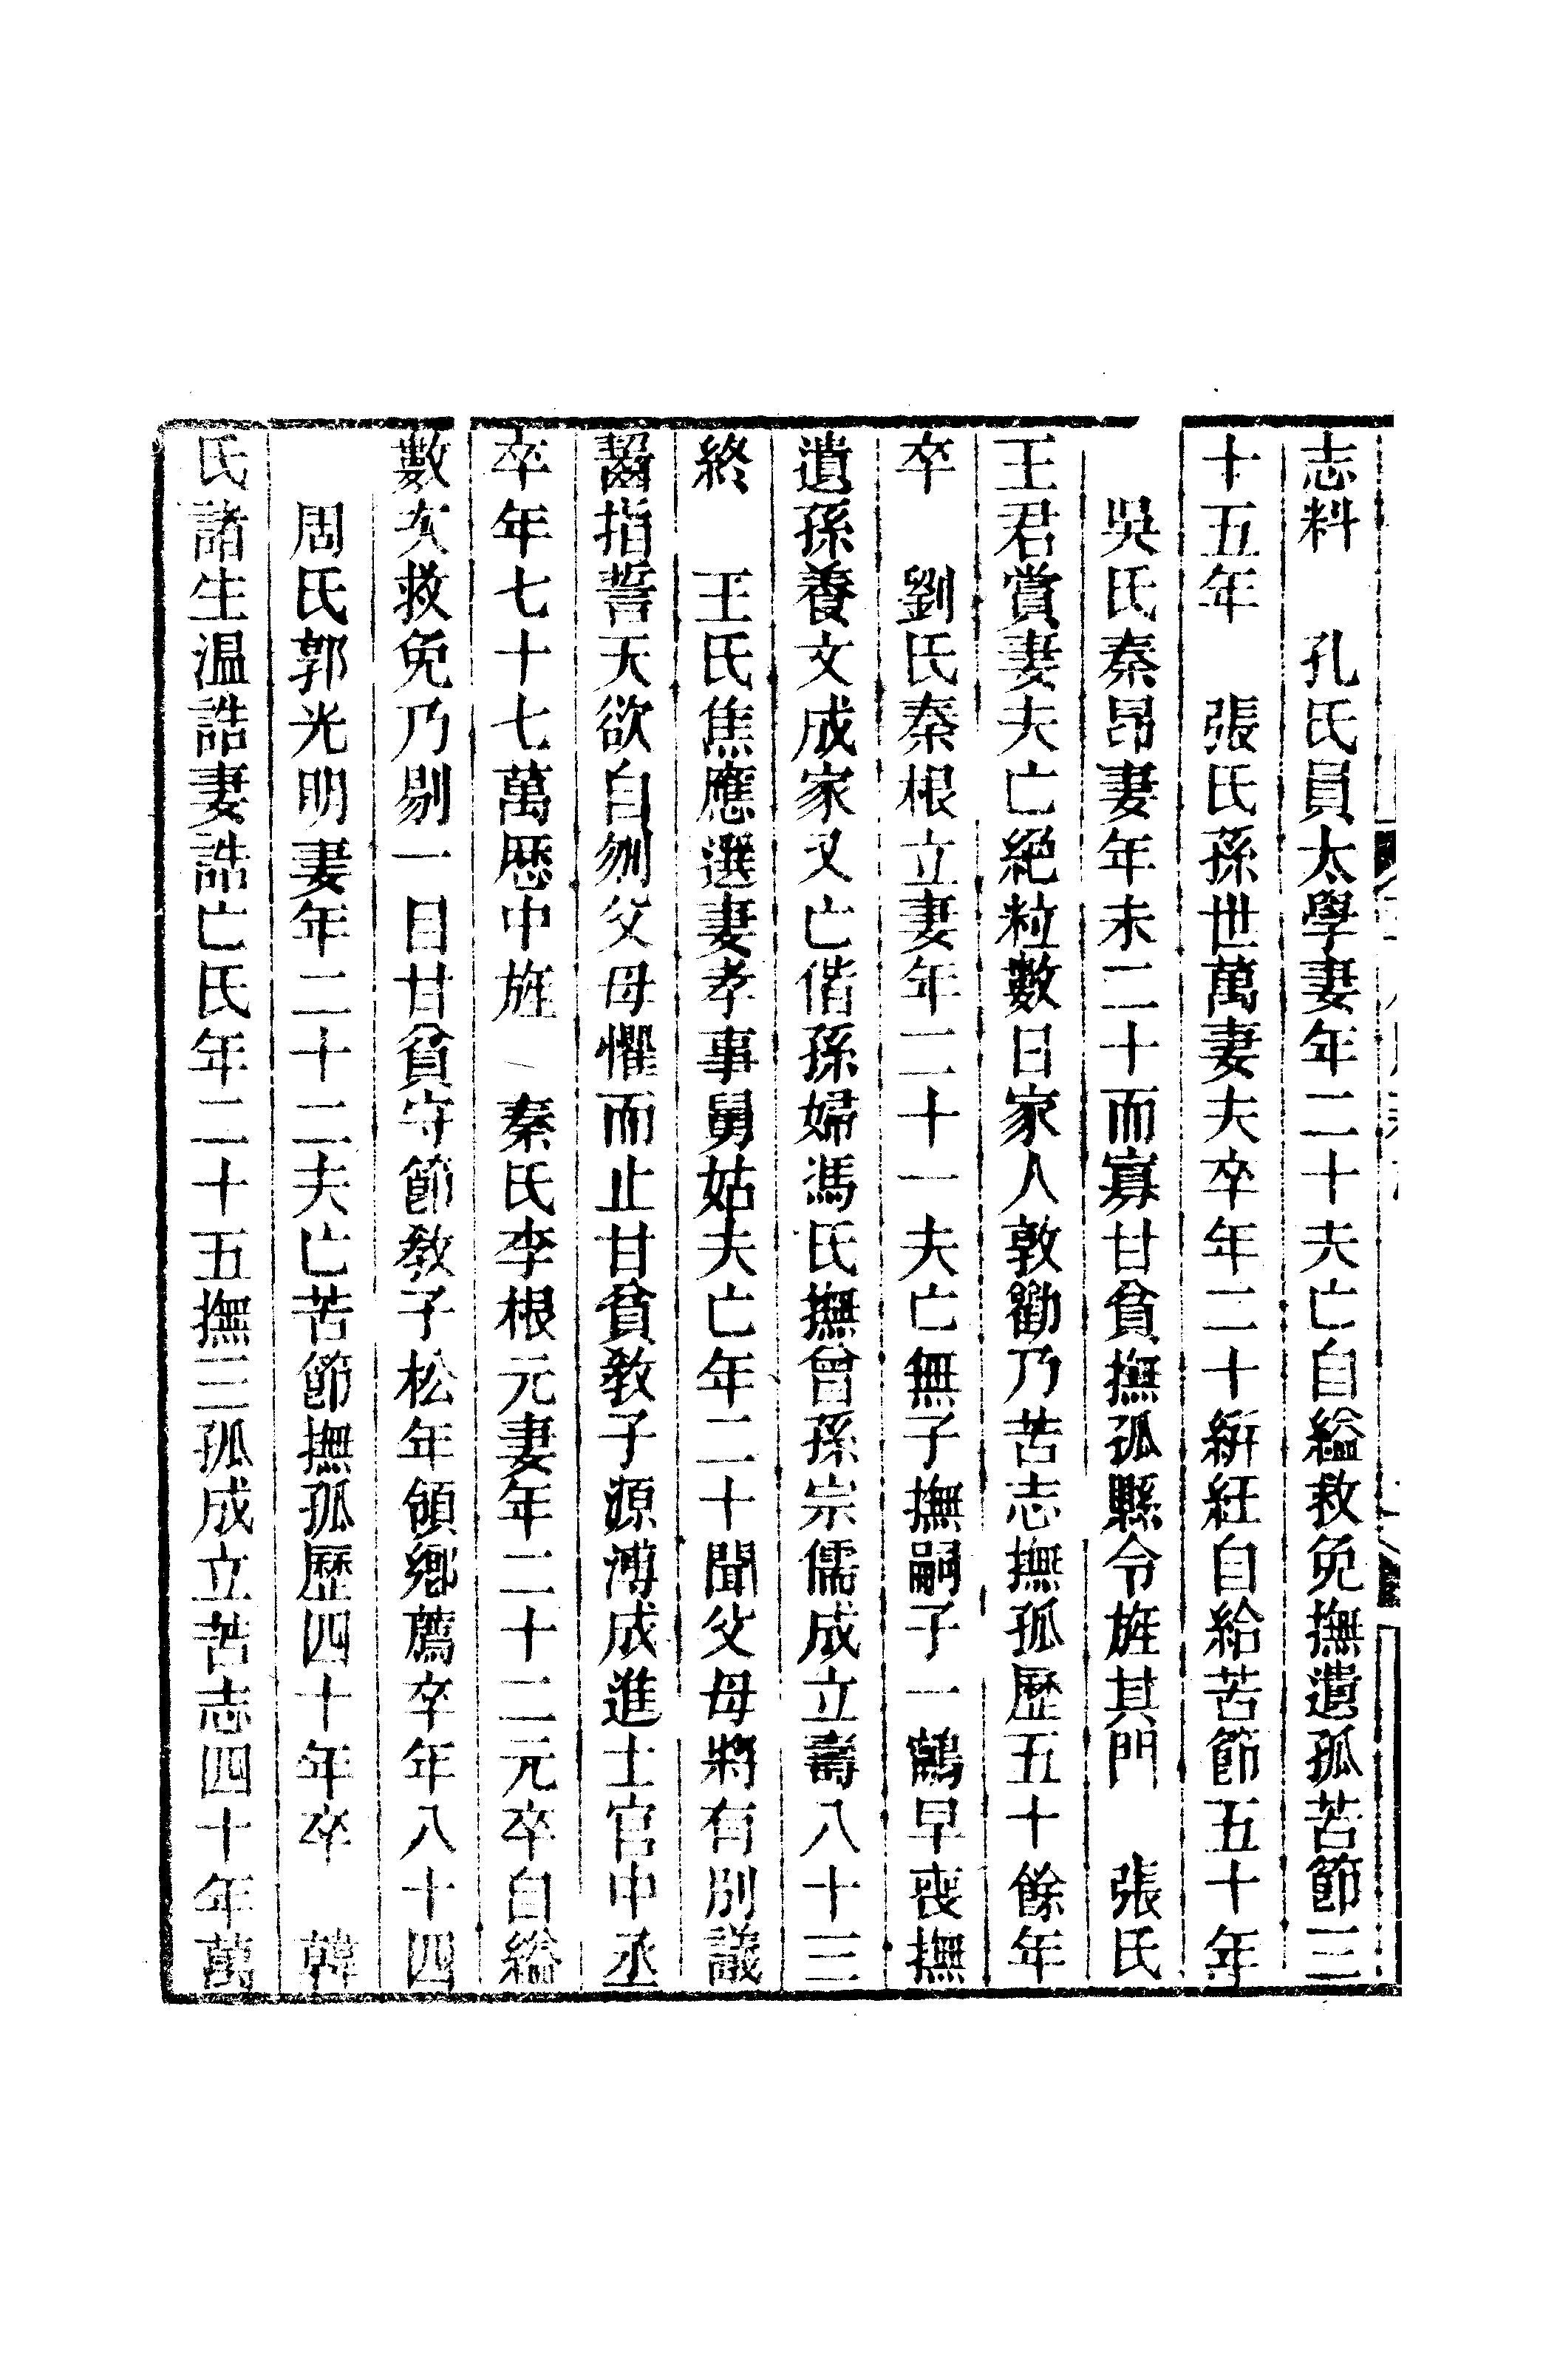 志料　孔氏員太學妻年二十夫亡自縊救免撫遺孤苦節三
十五年　張氏孫世萬妻夫卒年二十絣紝自給苦節五十年
吳氏秦昂妻年未二十而寡甘貧撫孤縣令旌其門　張氏
王君賞妻夫亡絕粒數日家人敦勸乃苦志撫孤歷五十餘年
卒　劉氏秦根立妻年二十一夫亡無子撫嗣子一鶴早喪撫
遺孫養文成家又亡偕孫婦馮氏撫曾孫崇儒成立壽八十三
終　王氏焦應選妻孝事舅姑夫亡年二十聞父母將有別議
齧指誓天欲自刎父母懼而止甘貧敎子源溥成進士官中丞
卒年七十七萬歷中旌　秦氏李根元妻年二十二元卒自縊
數次救免乃剔一目甘貧守節敎子松年領鄉薦卒年八十四
周氏郭光明妻年二十二夫亡苦節撫孤歷四十年卒　韓
氏諸生温誥妻誥亡氏年二十五撫三孤成立苦志四十年萬